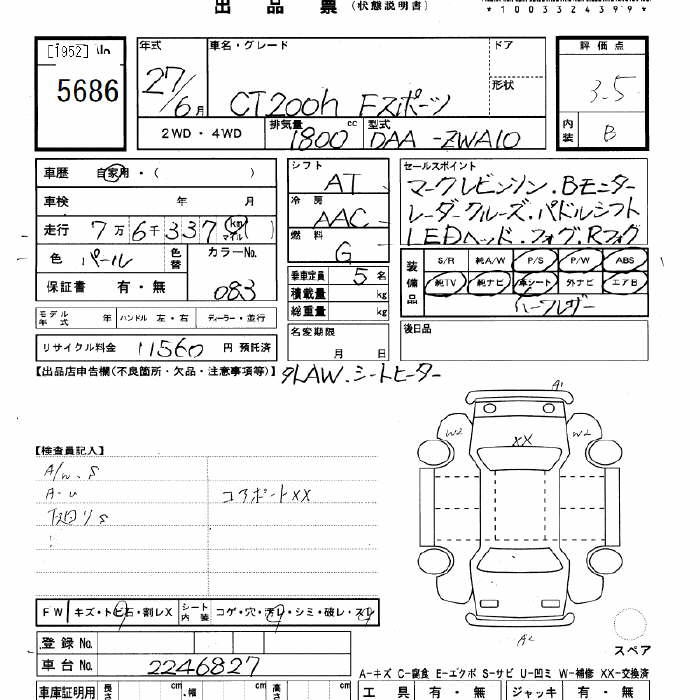 出品票 (状態説明書)
*10033243999*
[1952] No
5686
年式 車名・グレード ドア 評価点
27/6月 CT200h Fスポーツ 形状 3.5
2WD・4WD 排気量 1800 cc 型式 DAA-ZWA10 内装 B
車歴 自家用・( )
シフト AT
セールスポイント
車検 年 月
冷房 AAC
マークレビンソン.Bモニター
走行 7万6千337 (km マイル)
レーダークルーズ.パドルシフト
燃料 G
LEDヘッド.フォグ.Rフォグ
色 パール 色替 カラーNo. 083
装備品 S/R 純A/W P/S P/W ABS
乗車定員 5 名
純TV 純ナビ 革シート 外ナビ エアB
保証書 有・無
積載量 kg
ハーフレザー
総重量 kg
モデル年式 年 ハンドル 左・右 ディーラー・並行
名変期限 月 日
後日品
リサイクル料金 11560 円 預託済
【出品店申告欄(不良箇所・欠品・注意事項等)】 外AW.シートヒーター
A1
W2 XX W2
【検査員記入】
A/w.S
A-U コアポートXX
下廻りS
FW キズ・トビ石・割レX シート内装 コゲ・穴・汚レ・シミ・破レ・スレ
登録No.
A2
スペア
車台No. 2246827
A-キズ C-腐食 E-エクボ S-サビ U-凹ミ W-補修 XX-交換済
車庫証明用 長さ cm 幅 cm 高さ cm 工具 有・無 ジャッキ 有・無